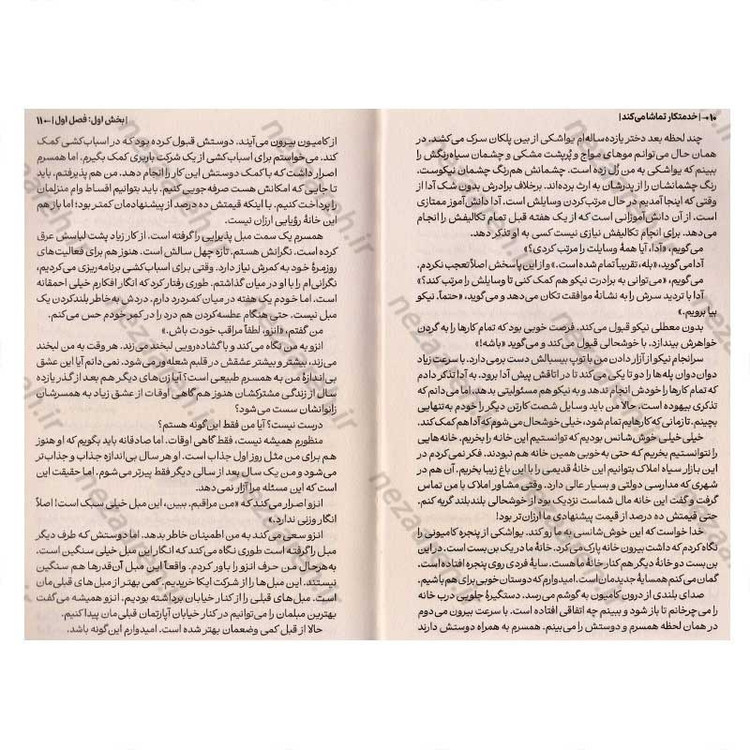 ۱۰ → | خدمتکار تماشا می‌کند |
چند لحظه بعد دختر یازده ساله‌ام یواشکی از بین پلکان سرک می‌کشد. در
همان حال می‌توانم موهای مواج و پُرپشت مشکی و چشمان سیاه‌رنگش را
ببینم که یواشکی به من زُل زده است. چشمانش هم‌رنگ چشمان نیکوست.
رنگ چشمانشان را از پدرشان به ارث برده‌اند. برخلاف برادرش بدون شک آدا از
وقتی که اینجا آمدیم در حال مرتب‌کردن وسایلش است. آدا دانش‌آموز ممتازی
است. از آن دانش‌آموزانی است که از یک هفته قبل تمام تکالیفش را انجام
می‌دهد. برای انجام تکالیفش نیازی نیست کسی به او تذکر دهد.
می‌گویم، «آدا، آیا همهٔ وسایلت را مرتب کردی؟»
آدا می‌گوید، «بله، تقریباً تمام شده است.» و از این پاسخش اصلاً تعجب نکردم.
می‌گویم، «می‌توانی به برادرت نیکو هم کمک کنی تا وسایلش را مرتب کند؟»
آدا با تردید سرش را به نشانهٔ موافقت تکان می‌دهد و می‌گوید، «حتماً. نیکو
بیا برویم.»
بدون معطلی نیکو قبول می‌کند. فرصت خوبی بود که تمام کارها را به گردن
خواهرش بیندازد. با خوشحالی قبول می‌کند و می‌گوید «باشه!»
سرانجام نیکو از آزار دادن من با توپ بیسبالش دست برمی‌دارد. با سرعت زیاد
دوان‌دوان پله‌ها را دو تا یکی می‌کند تا در اتاقش پیش آدا برود. به آدا تذکر دادم
که تمام کارها را خودش انجام ندهد و به نیکو هم مسئولیتی بدهد. اما می‌دانم که
تذکری بیهوده است. حالا من باید وسایل شصت کارتن دیگر را خودم به‌تنهایی
بچینم. تا زمانی که کارهایم تمام شود، خیلی خوشحال می‌شوم که آدا هم کمک کند.
خیلی خیلی خوش‌شانس بودیم که توانستیم این خانه را بخریم. خانه‌هایی
را نتوانستیم بخریم که حتی به‌خوبی همین خانه هم نبودند. فکر نمی‌کردم در
این بازار سیاه املاک بتوانیم این خانهٔ قدیمی را با این باغ زیبا بخریم. آن هم در
شهری که مدارسی دولتی و بسیار عالی دارد. وقتی مشاور املاک با من تماس
گرفت و گفت این خانه مال شماست نزدیک بود از خوشحالی بلندبلند گریه کنم.
حتی قیمتش ده درصد از قیمت پیشنهادی ما ارزان‌تر بود!
خدا خواست که این خوش‌شانسی به ما رو کند. یواشکی از پنجره کامیونی را
نگاه کردم که داشت بیرون خانه پارک می‌کرد. خانهٔ ما در یک بن‌بست است. در این
بن‌بست دو خانهٔ دیگر هم کنار خانهٔ ما هست. سایهٔ فردی روی پنجره افتاده است.
گمان می‌کنم همسایهٔ جدیدمان است. امیدوارم که دوستان خوبی برای هم باشیم.
صدای بلندی از درون کامیون به گوشم می‌رسد. دستگیرهٔ جلویی درب خانه
را می‌چرخانم تا باز شود و ببینم چه اتفاقی افتاده است. با سرعت بیرون می‌دوم
در همان لحظه همسرم و دوستش را می‌بینم. همسرم به همراه دوستش دارند
| بخش اول: فصل اول | ← ۱۱
از کامیون بیرون می‌آیند. دوستش قبول کرده بود که در اسباب‌کشی کمک
کند. می‌خواستم برای اسباب‌کشی از یک شرکت باربری کمک بگیرم. اما همسرم
اصرار داشت که با کمک دوستش این کار را انجام دهد. من هم پذیرفتم. باید
تا جایی که امکانش هست صرفه‌جویی کنیم. باید بتوانیم اقساط وام منزلمان
را پرداخت کنیم. با اینکه قیمتش ده درصد از پیشنهادمان کمتر بود؛ اما باز هم
این خانهٔ رؤیایی ارزان نیست.
همسرم یک سمت مبل پذیرایی را گرفته است. از کار زیاد پشت لباسش عرق
کرده است. نگرانش هستم. تازه چهل سالش است. هنوز هم برای فعالیت‌های
روزمرهٔ خود به کمرش نیاز دارد. وقتی برای اسباب‌کشی برنامه‌ریزی می‌کردیم،
نگرانی‌ام را با او در میان گذاشتم. طوری رفتار کرد که انگار افکارم خیلی احمقانه
است. اما خودم یک هفته در میان کمردرد دارم. دردش به‌خاطر بلندکردن یک
مبل نیست. حتی هنگام عطسه‌کردن هم درد را در کمر خودم حس می‌کنم.
من گفتم، «انزو، لطفاً مراقب خودت باش.»
انزو به من نگاه می‌کند و با گشاده‌رویی لبخند می‌زند. هر وقت به من لبخند
می‌زند، بیشتر و بیشتر عشقش در قلبم شعله‌ور می‌شود. نمی‌دانم آیا این عشق
بی‌اندازهٔ من به همسرم طبیعی است؟ آیا زن‌های دیگر هم بعد از گذر یازده
سال از زندگی مشترکشان هنوز هم گاهی اوقات از عشق زیاد به همسرشان
زانوانشان سست می‌شود؟
درست نیست؟ آیا من فقط این‌گونه هستم؟
منظورم همیشه نیست، فقط گاهی اوقات. اما صادقانه باید بگویم که او هنوز
هم برای من مثل روز اول جذاب است. او هر سال بی‌اندازه جذاب و جذاب‌تر
می‌شود و من یک سال بعد از سالی دیگر فقط پیرتر می‌شوم. اما حقیقت این
است که این مسئله مرا آزار نمی‌دهد.
انزو اصرار می‌کند که «من مراقبم. ببین، این مبل خیلی سبک است! اصلاً
انگار وزنی ندارد.»
انزو سعی می‌کند به من اطمینان خاطر بدهد. اما دوستش که طرف دیگر
مبل را گرفته است طوری نگاه می‌کند که انگار این مبل خیلی سنگین است.
به‌هرحال من حرف انزو را باور کردم. واقعاً این مبل آن‌قدرها هم سنگین
نیستند. این مبل‌ها را از شرکت ایکا خریدیم. کمی بهتر از مبل‌های قبلی‌مان
است. مبل‌های قبلی را از کنار خیابان برداشته بودیم. انزو همیشه می‌گفت
بهترین مبلمان را می‌توانیم در کنار خیابان آپارتمان قبلی‌مان پیدا کنیم.
حالا از قبل کمی وضعمان بهتر شده است. امیدوارم این‌گونه باشد.